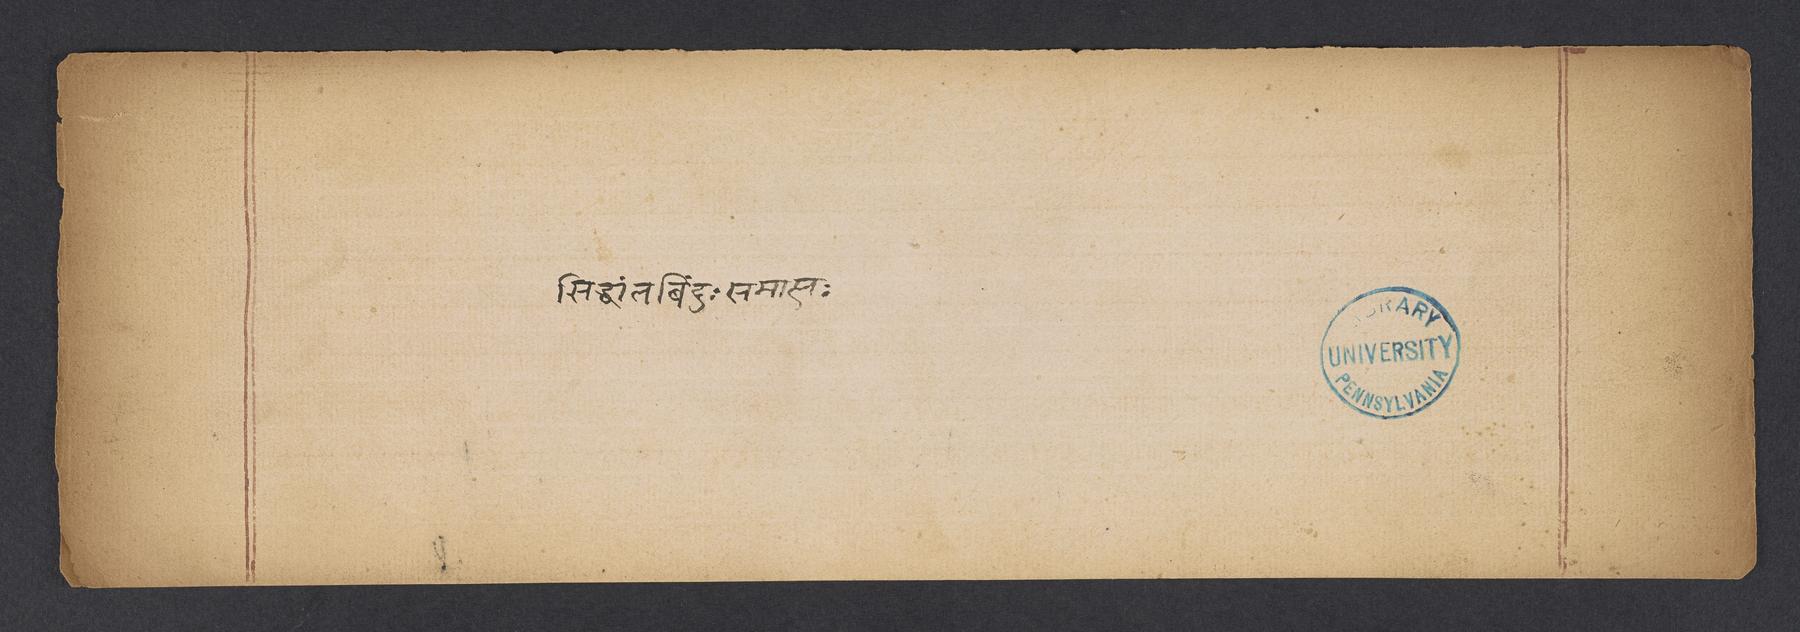 सिद्धांतबिंदुः समाप्तः
LIBRARY
UNIVERSITY
PENNSYLVANIA